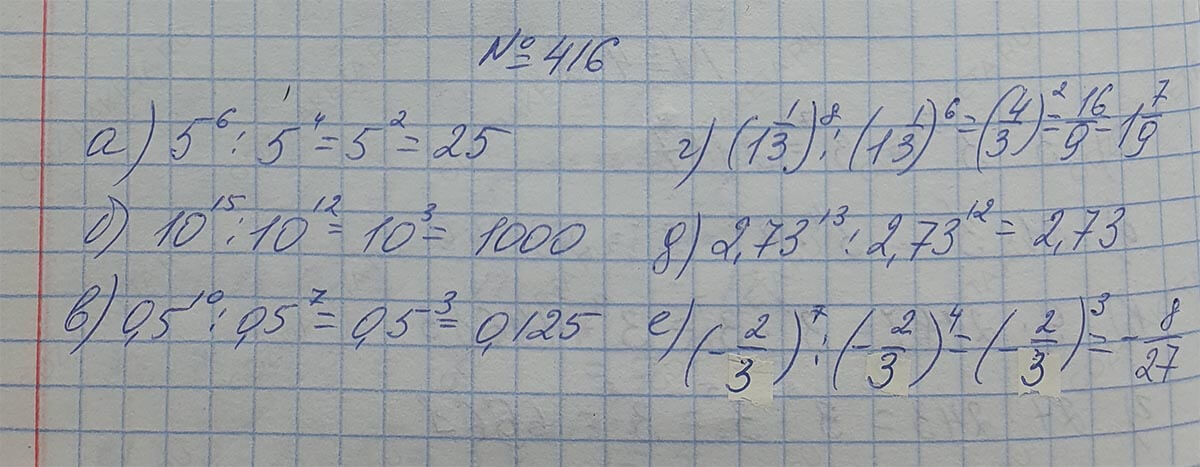 № 416
а) 5⁶ : 5⁴ = 5² = 25
б) 10¹⁵ : 10¹² = 10³ = 1000
в) 0,5¹⁰ : 0,5⁷ = 0,5³ = 0,125
г) (1 1/3)⁸ : (1 1/3)⁶ = (4/3)² = 16/9 = 1 7/9
д) 2,73¹³ : 2,73¹² = 2,73
е) (- 2/3)⁷ : (- 2/3)⁴ = (- 2/3)³ = - 8/27